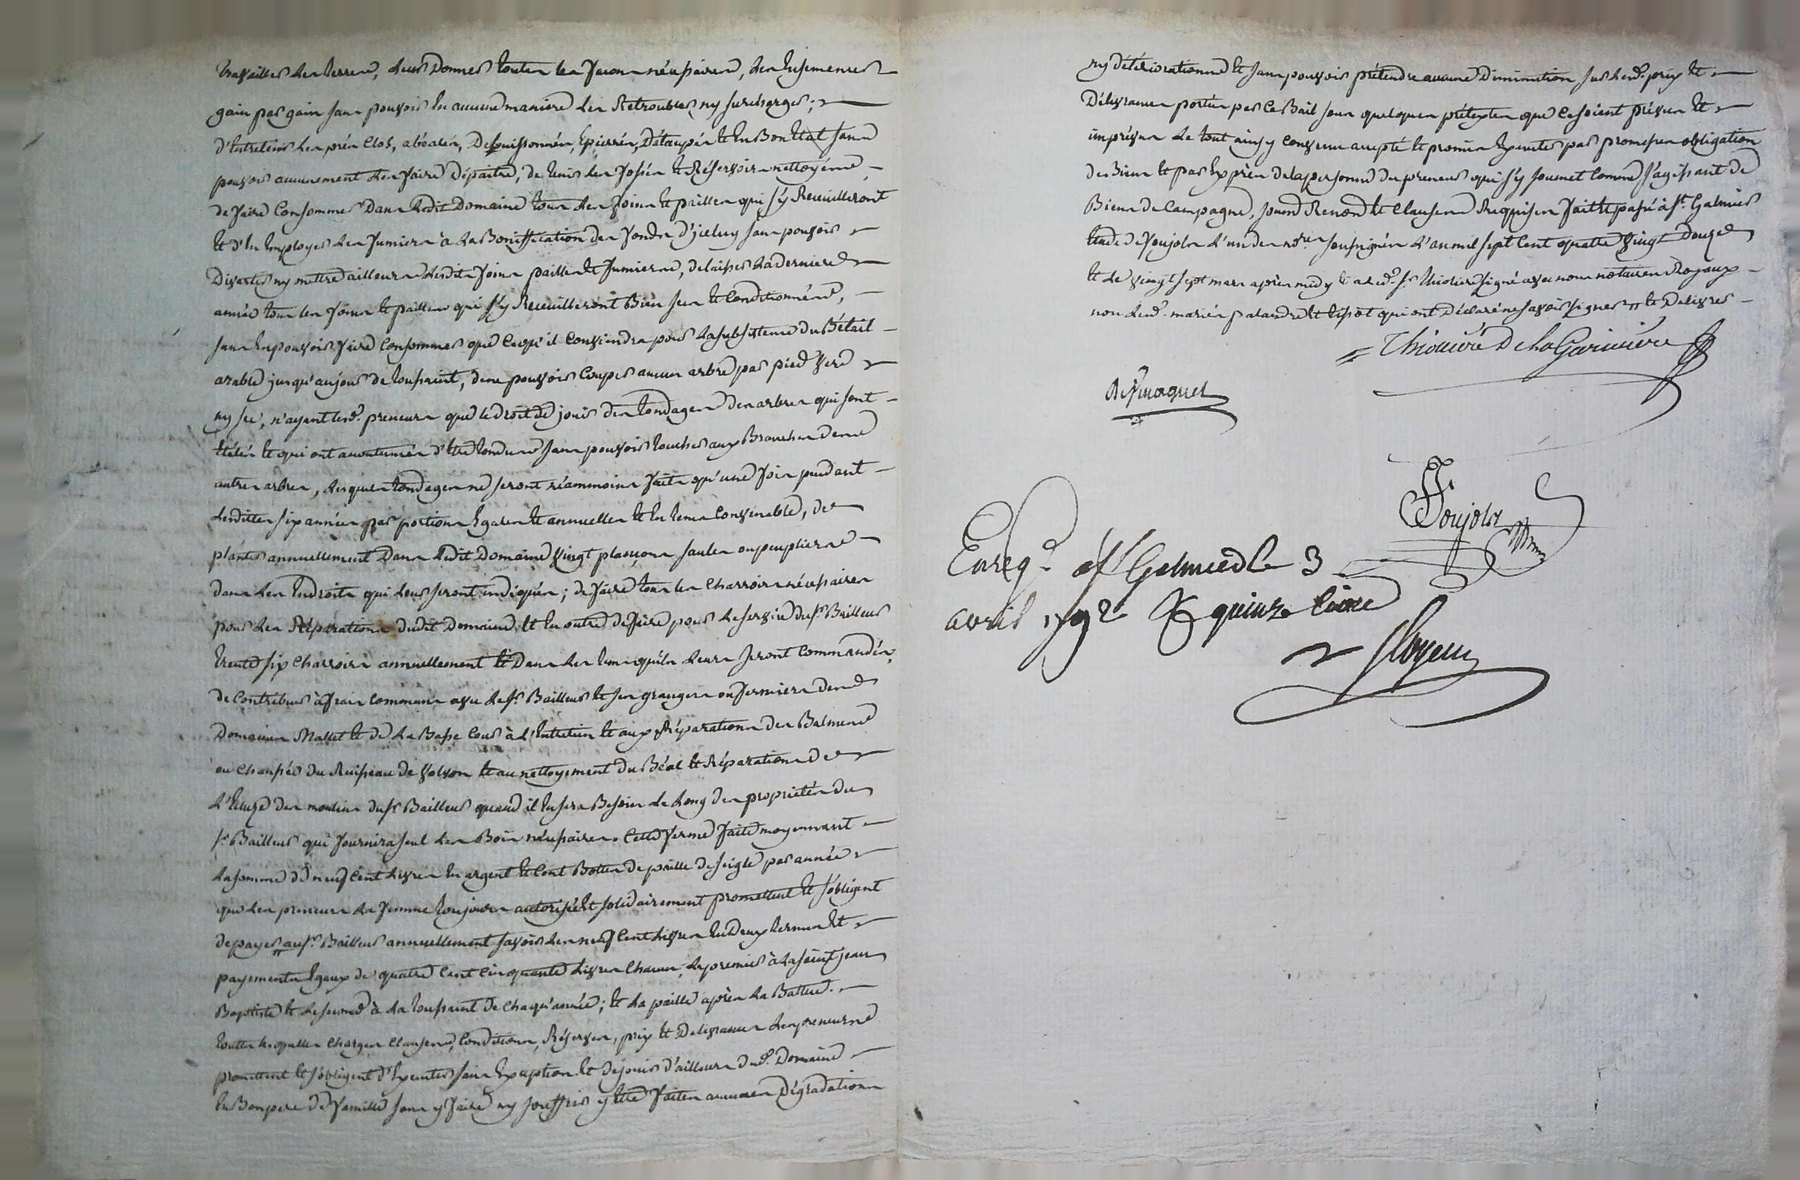 travailler les terres, leurs donner toutes les façons nécessaires, les ensemencer
gain par gain sans pouvoir en aucune maniere les Retroubler ny surcharger;
d'Entretenir les prés Clos, abéalés, Debuissonnés, Epierrés, Détaupés et En Bon Etat sans
pouvoir aucunement les faire dépaitre, de tenir les fossés et Réservoirs nettoyés,
de faire Consommer Dans ledit Domaine tous les foins et pailles qui s'y Recueilleront
et d'En Employer les fumiers à la Boniffication des fonds d'jceluy sans pouvoir
Divertir ny mettre ailleurs lesdits foins pailles et fumiers, de laisser la derniere
année tous les foins et pailles qui s'y Recueilleront Bien secs et Conditionnés,
sans En pouvoir faire Consommer que Ce qu'il Conviendra pour la subsistence du Bétail
arable jusqu'au jour de toussaint, de ne pouvoir Couper aucun arbre par pied Verd
ny sec, n'ayant lesd. preneurs que le droit de jouir des tondages des arbres qui sont
têtés et qui ont accoutumés d'être tondus sans pouvoir toucher aux Branches des
autres arbres, lesquels tondages ne seront néammoins faits qu'une fois pendant
lesdittes six années par portions Egales et annuelles et En tems Convenable, de
planter annuellement Dans ledit Domaine Vingt plançons saules ou peupliers
dans les Endroits qui leur seront indiqués; de faire tous les Charrois nécessaires
pour les Réparations dudit Domaine, et En outre de faire pour le service du sr. Bailleur
trente six Charrois annuellement et Dans les tems qu'ils leurs seront Commandés,
de Contribuer à frais Communs avec le sr. Bailleur et ses grangers ou fermiers des
Domaines Mallet et de La Basse Cour à L'Entretien et aux Réparations des Balmes
ou Chaussée du Ruisseau de Volvon et au nettoyement du Béal et Réparations de
L'Ecluse des moulins du sr. Bailleur quand il En sera Besoin Le Long des propriétés du
sr. Bailleur qui fournira seul les Bois nécessaires. Cette ferme faite moyennant
la somme de neuf Cent Livres En argent et Cent Bottes de paille de seigle par année
que les preneurs La femme toujours autorisée et solidairement promettent et s'obligent
de payer au sr. Bailleur annuellement savoir les neuf Cent Livres En Deux termes et
payements Egaux de quatre Cent Cinquante Livres Chacun, Le premier à la saint jean
Baptiste et Le second à la toussaint de Chaqu'année; et La paille après La Batture.
toutes lesquelles Charges Clauses, Conditions, Réserves, prix et Délivrances Les preneurs
promettent et s'obligent d'Executer sans Exception et de jouir d'ailleurs dud. Domaine
En Bon pere de famille sans y faire ny souffrir y être faites aucunes Dégradations
ny détériorations et sans pouvoir prétendre aucune Diminution sur lesd. prix et
Délivrances portés par Ce Bail sous quelques prétextes que Ce soient prévus et
imprévus Le tout ainsy Convenu accepté et promis Executer par promesses obligation
de Biens et par Exprès de la personne du preneur qui s'y soumet Comme s'agissant de
Biens de Campagne, soumis Renoncé et Clauses Requises fait et passé à St. Galmier
Etude de Soujols L'un des Nres. soussignés L'an mil sept Cent quatre Vingt Douze
et Le Vingt sept mars après midy et a led. sr. Thiolier signé avec nous notaires Royaux
non lesd. mariés palandre et Espot qui ont Déclaré ne savoir signer et Délivrer
Thiollière De la Garinière
Soujols
Enreg.é à St Galmier le 3
avril 1792 R quinze livres